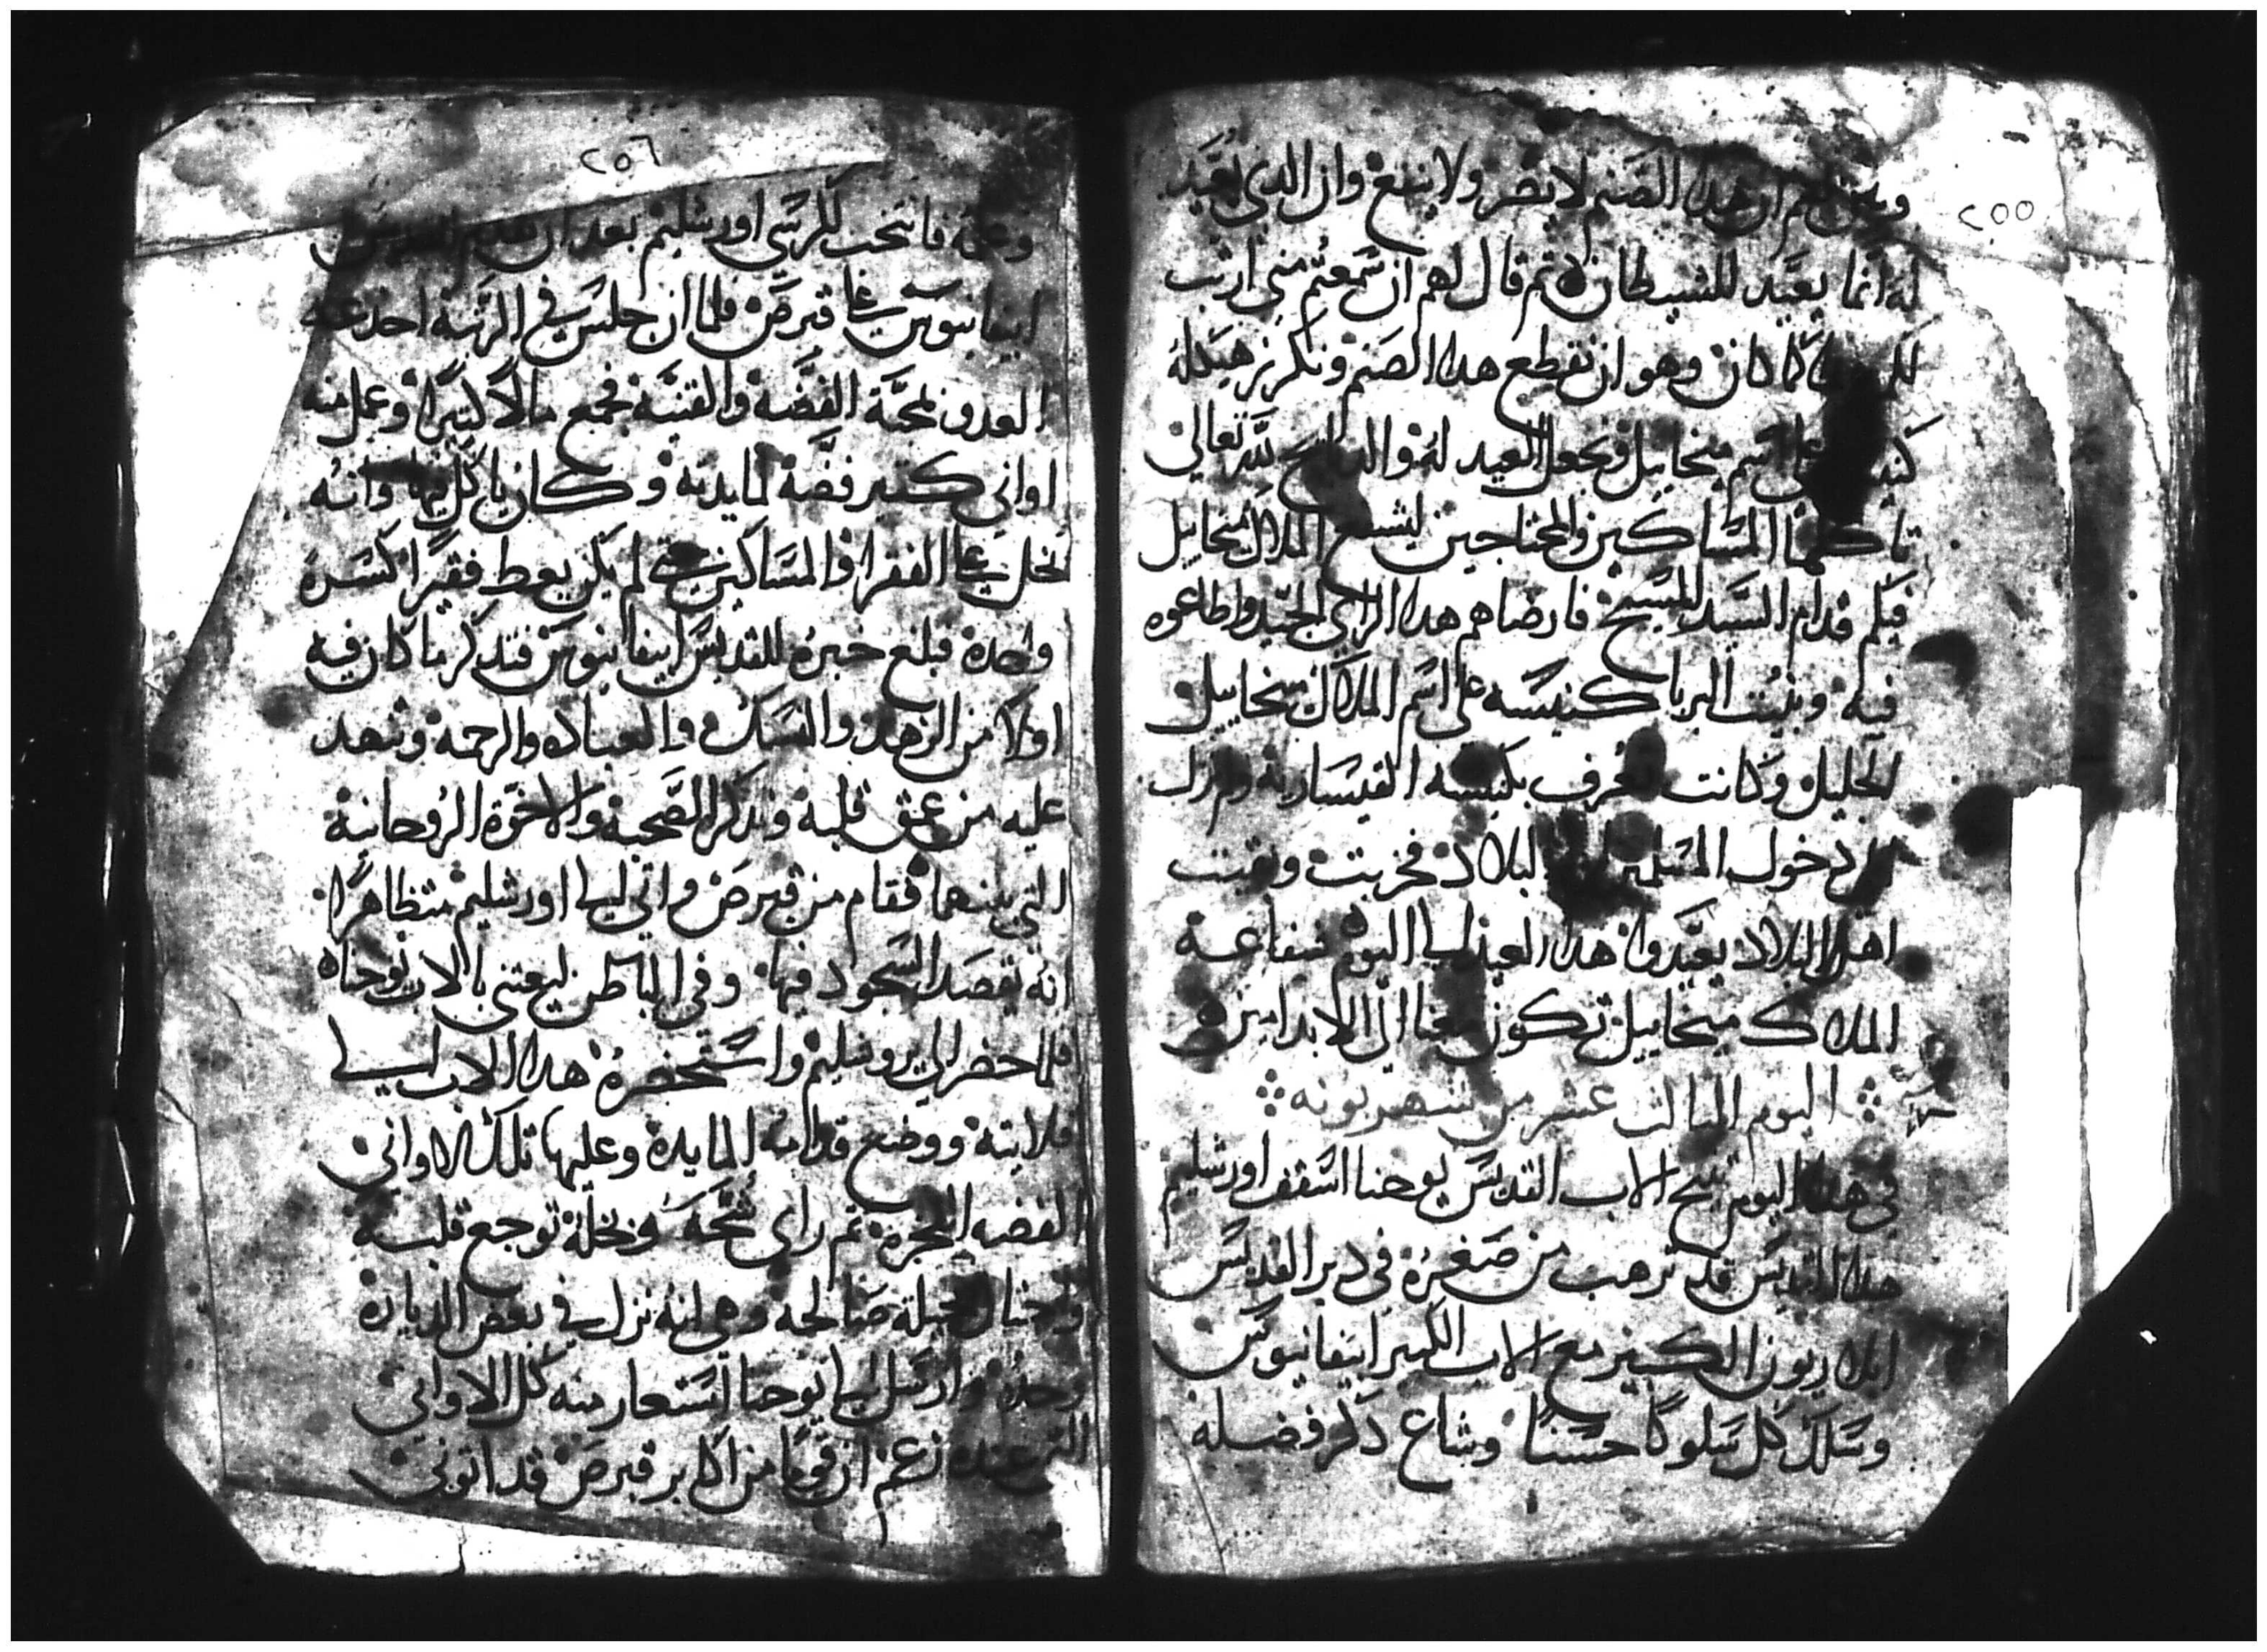 ٢٥٥
ان هدا الصنم لا يضر ولا ينفع وان الدى تعبد
له انما يعبد للشيطان ثم قال لهم ان سمعتم منى ارتب
كما كان وهو ان نقطع هدا الصنم ونكرز هيكله
على اسم ميخاييل ونجعل العيد له والدبايح لله تعالى
تاكلها المساكين والمحتاجين ليشفع الملاك ميخاييل
فيكم قدام السيد المسيح فارضاهم هدا الراى الجيد واطاعوه
فيه وبنيت البربا كنيسه على اسم الملاك ميخاييل
الجليل وكانت تعرف بكنيسه القيسارية ولم تزل
دخول المسلمين البلاد فخربت وبقيت
اهل البلاد يعيدوا هدا العيد الى اليوم شفاعة
الملاك ميخاييل تكون معنا الى الابد امين
اليوم التالت عشر من شهر بونه
فى هدا اليوم تنيح الاب القديس يوحنا اسقف اورشليم
هدا القديس قد ترهب من صغره فى دير القديس
ايلاريون الكبير مع الاب الكبير ابيفانيوس
وسلك كل سلوكا حسنا وشاع دكر فضله
٢٥٦
وعلمه فانتخب لكرسى اورشليم بعد ان قدم القديس
ابيفانيوس على قبرص فلما ان جلس فى الرتبة اخدعه
العدو لمحبة الفضه والقنيه فجمع مالا كتيرا وعمل منه
اوانى كتير فضة لمايدته وكان ياكل فيها وانه
بخل على الفقرا والمساكين حتى لم يكن يعط فقيرا كسرة
واحدة فبلغ خبره للقديس ابيفانيوس فتدكر ما كان فيه
اولا من الزهد والنسك والعباده والرحمه وتنهد
عليه من عمق قلبه وتدكر الصحبة والاخوة الروحانية
التى بينهما فقام من قبرص واتى الى اورشليم متظاهرا
انه يقصد السجود فيها وفى الباطن ليعتنى بالاب يوحنا
فلما حضر الى يروشليم واستحضره هدا الاب الى
قلايته ووضع قدامه المايدة وعليها تلك الاوانى
الفضه الفخرة ثم راى شحه وبخله توجع قلبه
واحتال حيلة صالحه وهى انه نزل فى بعض الديارة
وحده وارسل الى يوحنا استعار منه كل الاوانى
التى عنده زعم ان قوما من اكابر قبرص قد اتونى